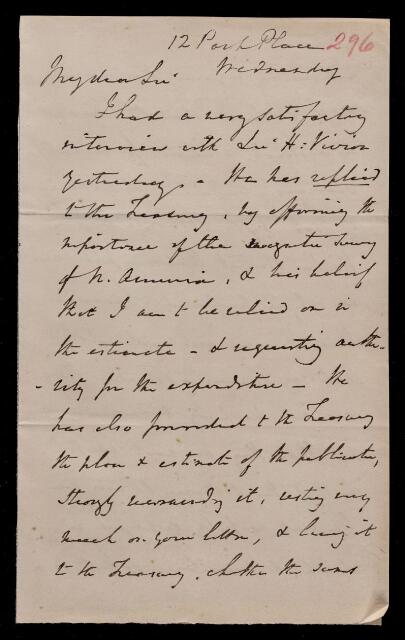 12 Park Place 296
Wednesday
My dear Sir
I had a very satisfactory
interview with Sir H: Vivian
yesterday. - He has replied
to the Treasury, by affirming the
importance of the magnetic Survey
of N. America, & his belief
that I am to be relied on in
the estimate - & requesting autho-
-rity for the expenditure - He
has also forwarded to the Treasury
the plan & estimate of the publication,
strongly recommending it, resting very
much on your letter, & leaving it
to the Treasury, whether the same